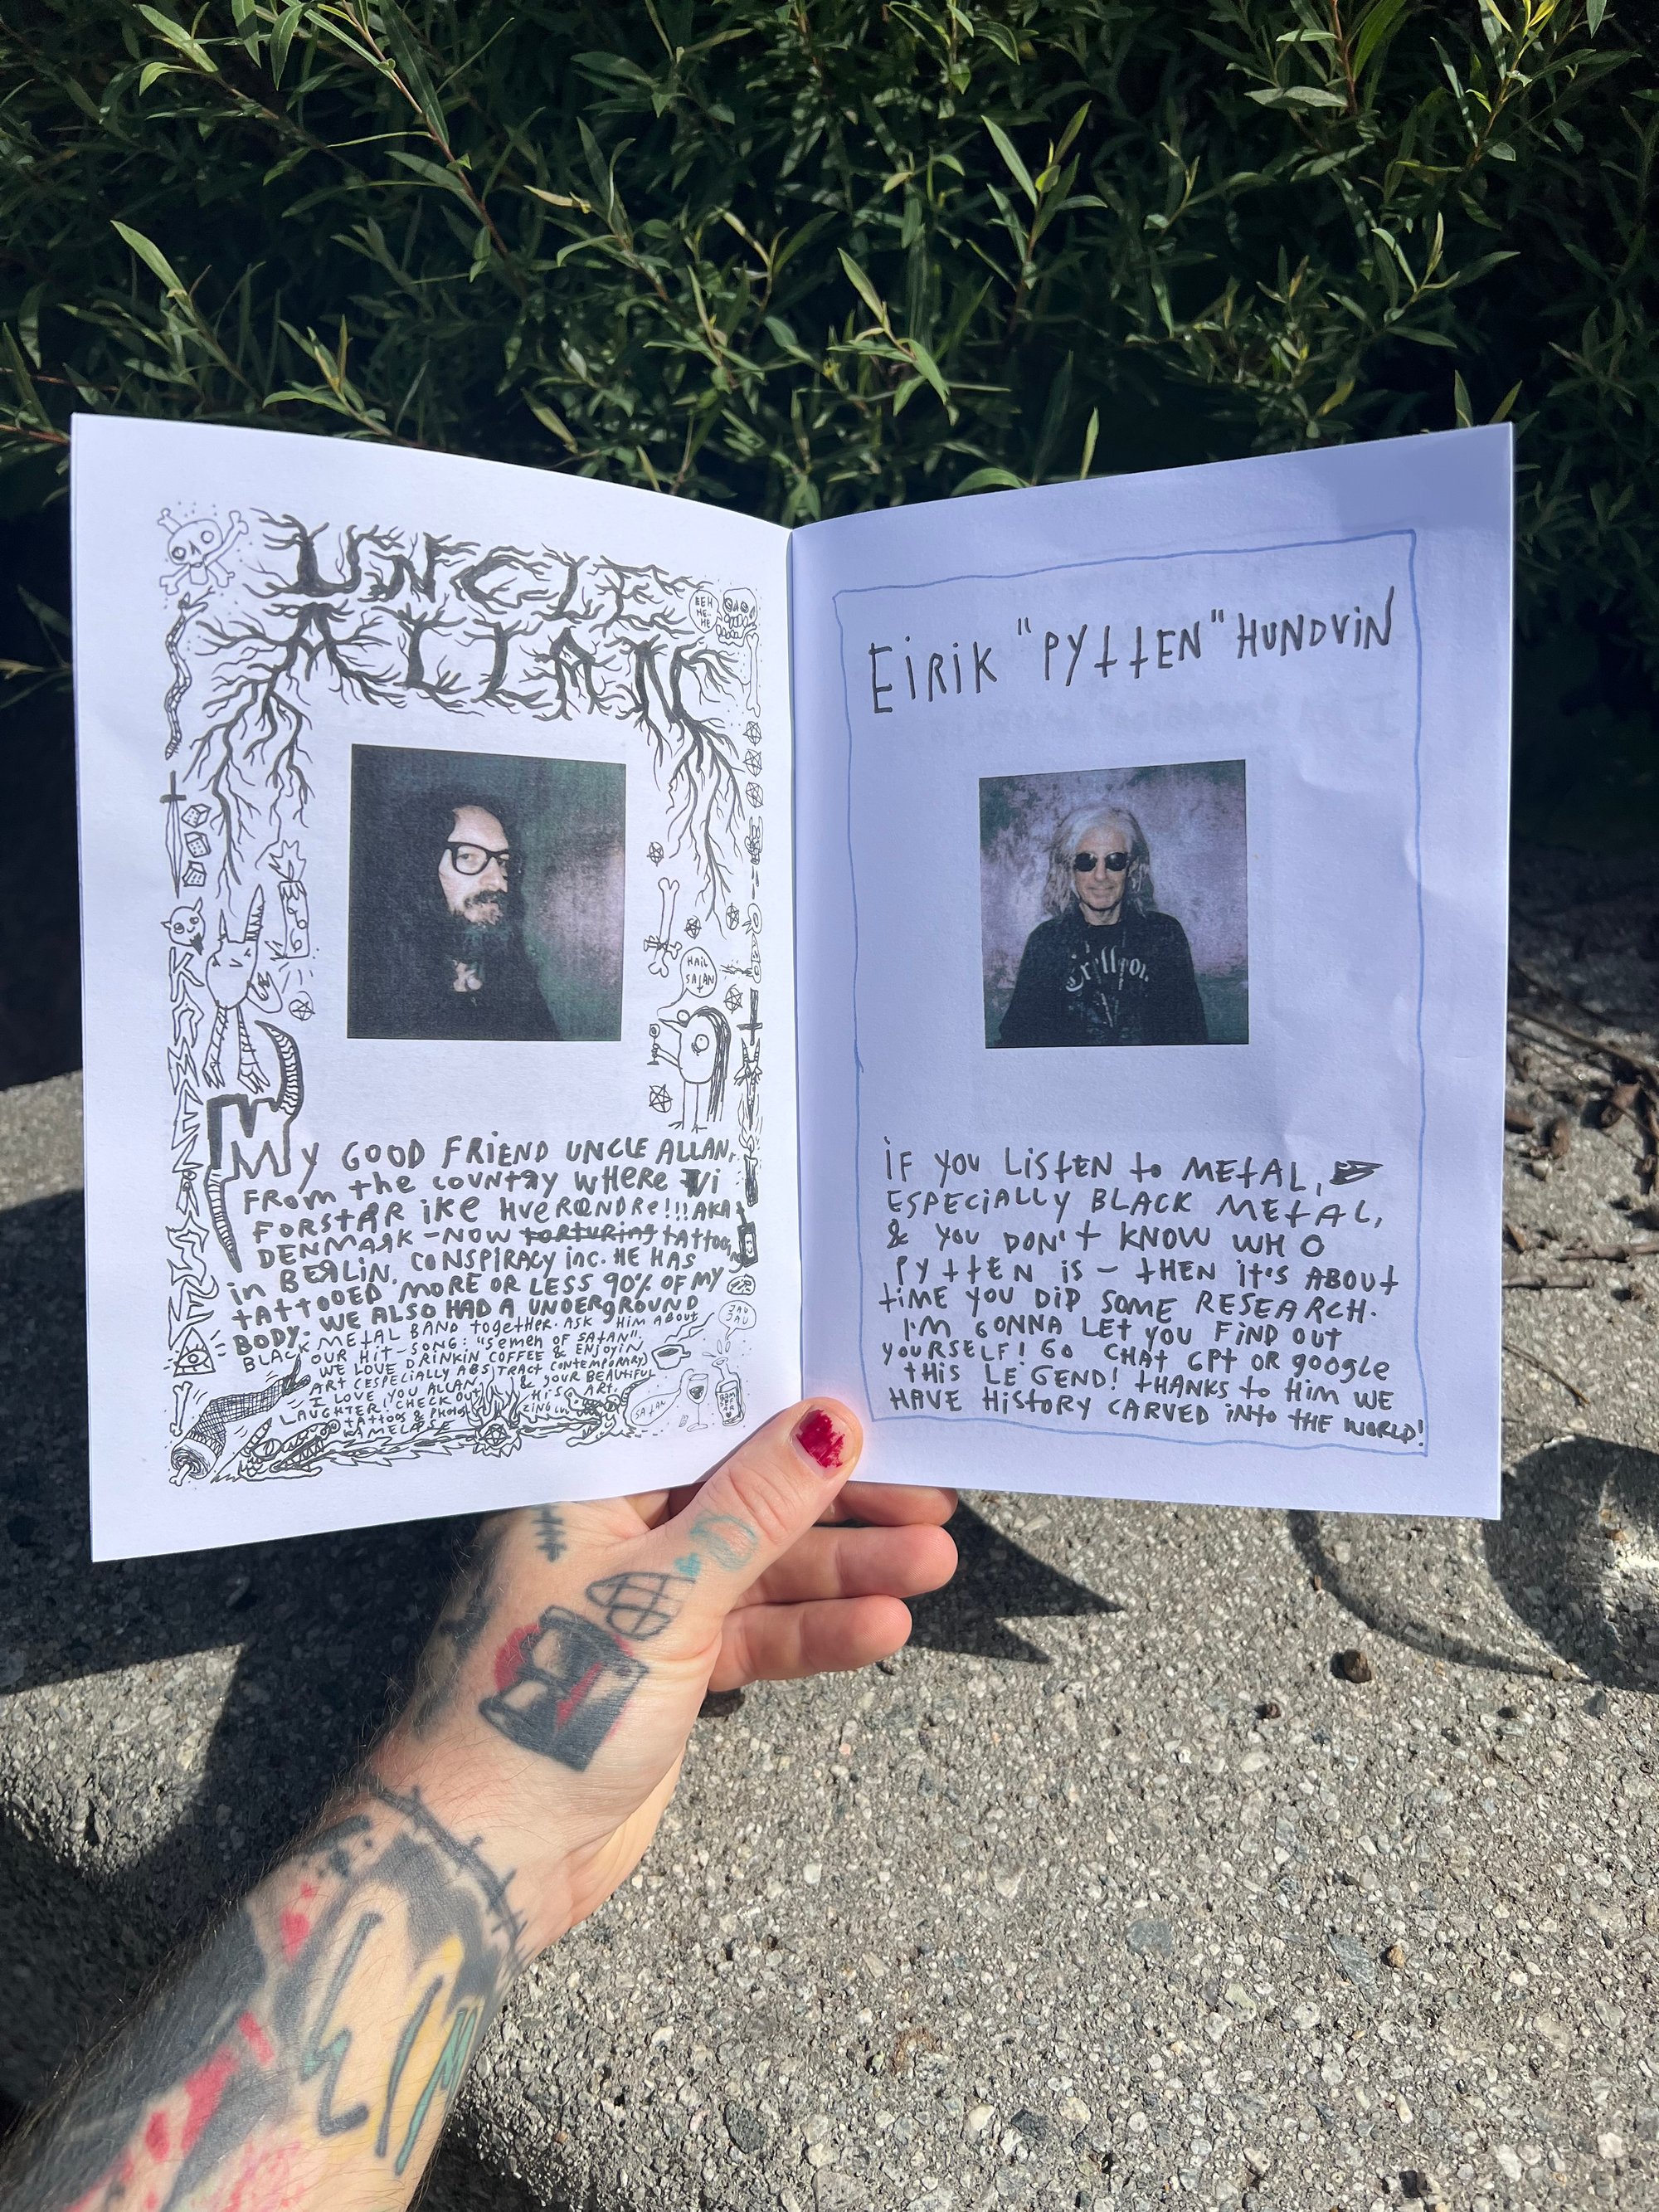 UNCLE
ALLAN
EEH
HE-
HE
HAIL
SATAN
KAMELA
My GOOD FRIEND UNCLE ALLAN,
FROM the COUNTRY WHERE Vi
FORSTÅR iKE HVERANDRE!!! AKA
DENMARK - NOW TORTURING tAttOOING
in BERLIN, CONSPIRACY inc. HE HAS
tATTOOED MORE OR LESS 90% OF MY
BODY. WE ALSO HAD A UNDERGROUND
BLACK METAL BAND togetHER. ASK HIM ABOUT
OUR Hit-SONG: "SEMEN OF SATAN".
WE LOVE DRINKIN COFFEE & ENJOYIN
ART (ESPECIALLY ABSTRACT CONTEMPORARY)
I LOVE YOU ALLAN, & YOUR BEAUTIFUL
LAUGHTER! CHECK OUT HIS ART,
TATTOOS & PHOTOS
JAU
JAU
SATAN
EiRiK "PYttEN" HUNDVIN
Trelldom
iF YOU LiStEN to METAL,
ESPECiALLY BLACK METAL,
& YOU DON't KNOW WHO
PYttEN iS - tHEN it'S ABOUt
tiME YOU DiD SOME RESEARCH.
I'M GONNA LEt YOU FiND OUt
YOURSELF! GO CHAt GPt OR google
tHiS LEGEND! tHANKS to HiM WE
HAVE HiStORY CARVED iNto tHE WORLD!